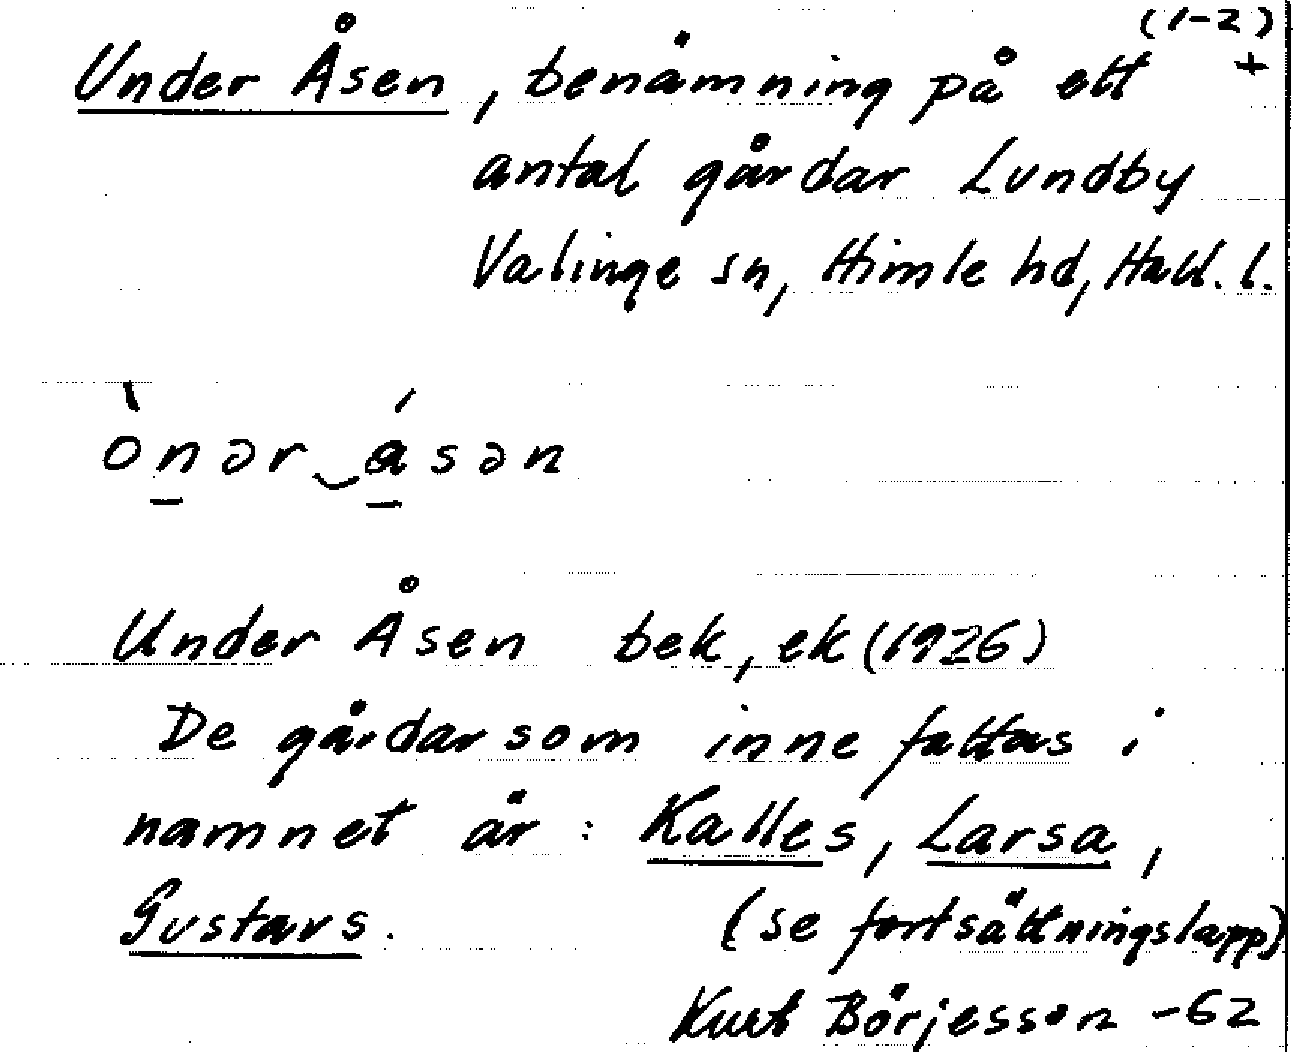 (1-2)
Under Åsen, benämning på ett +
antal gårdar Lundby
Valinge sn, Himle hd, Hall. l.
ònər‿ásən
Under Åsen bek, ek (1926)
De gårdar som innefattas i
namnet är: Kalles, Larsa,
Gustavs. (se fortsättningslapp)
Kurt Börjesson -62